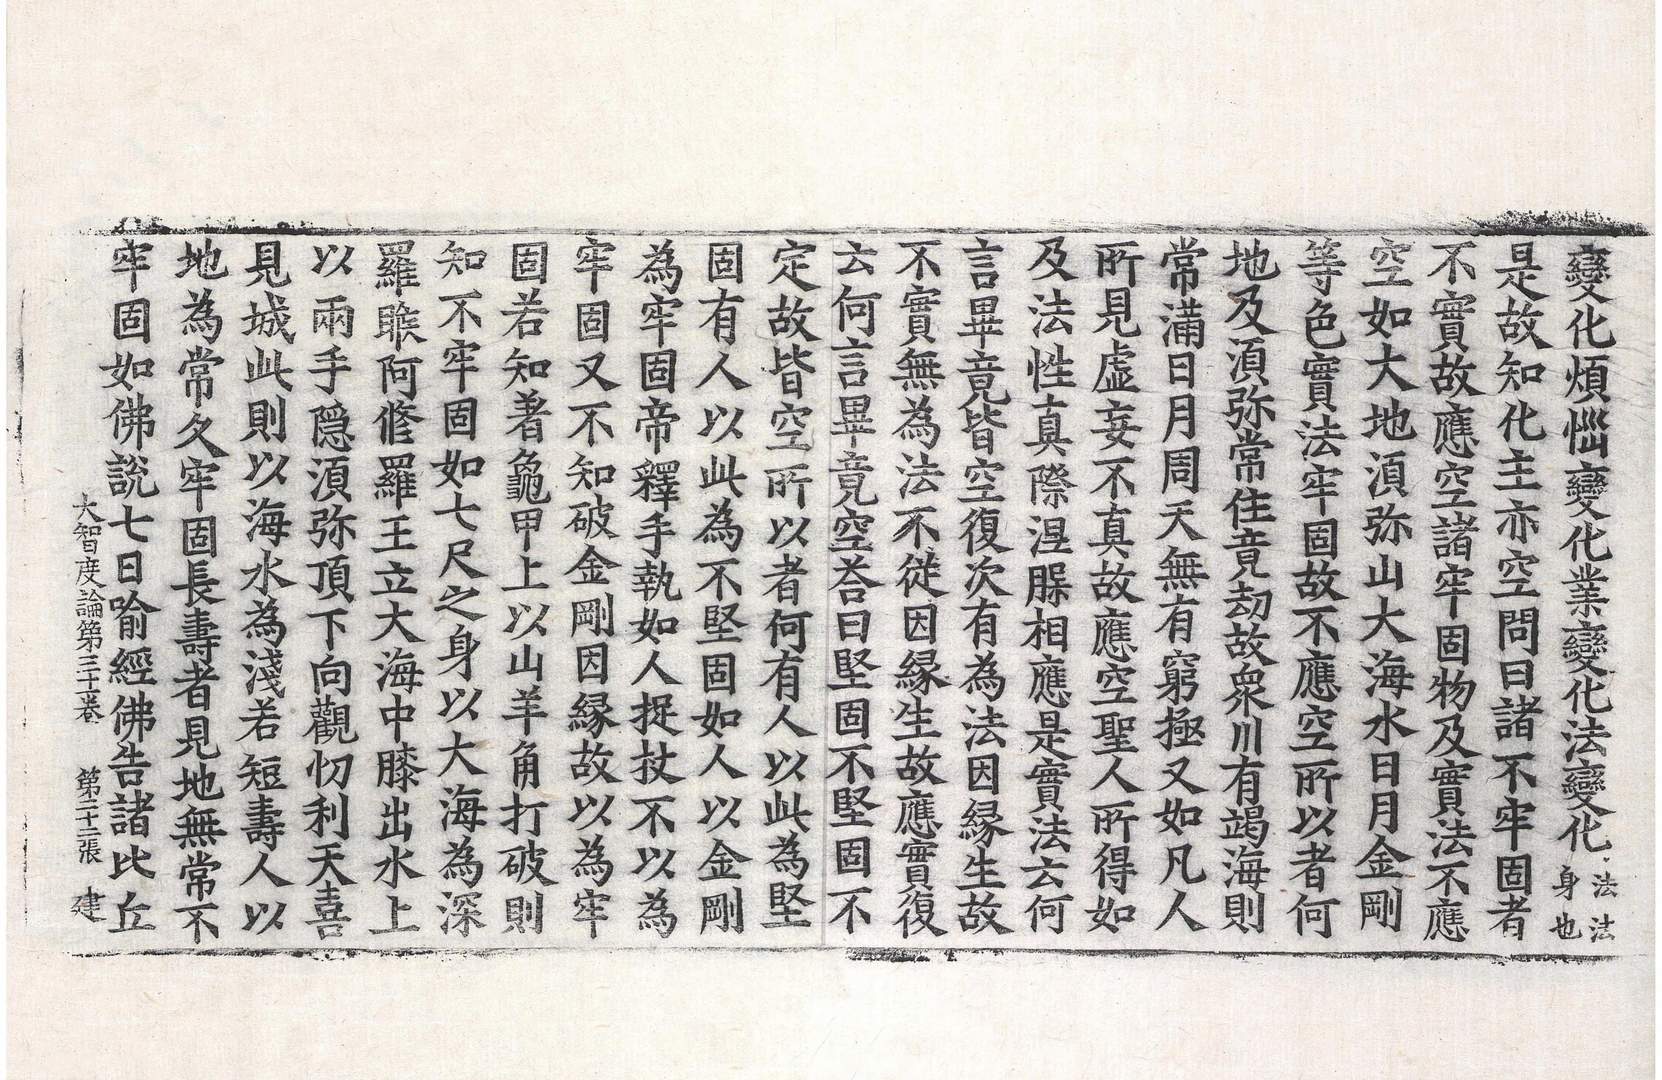 變化煩惱變化業變化法變化法法身也
是故知化主亦空問曰諸不牢固者
不實故應空諸牢固物及實法不應
空如大地湏弥山大海水日月金剛
等色實法牢固故不應空所以者何
地及湏弥常住竟劫故衆川有竭海則
常滿日月周天無有窮極又如凡人
所見虛妄不真故應空聖人所得如
及法性真際涅槃相應是實法云何
言畢竟皆空復次有為法因緣生故
不實無為法不從因緣生故應實復
云何言畢竟空荅曰堅固不堅固不
定故皆空所以者何有人以此為堅
固有人以此為不堅固如人以金剛
為牢固帝釋手執如人捉杖不以為
牢固又不知破金剛因緣故以為牢
固若知著龜甲上以山羊角打破則
知不牢固如七尺之身以大海為深
羅睺阿修羅王立大海中膝出水上
以兩手隱湏弥頂下向觀忉利天喜
見城此則以海水為淺若短壽人以
地為常久牢固長壽者見地無常不
牢固如佛說七日喻經佛告諸比丘
大智度論第三十一卷 第二十二張 建